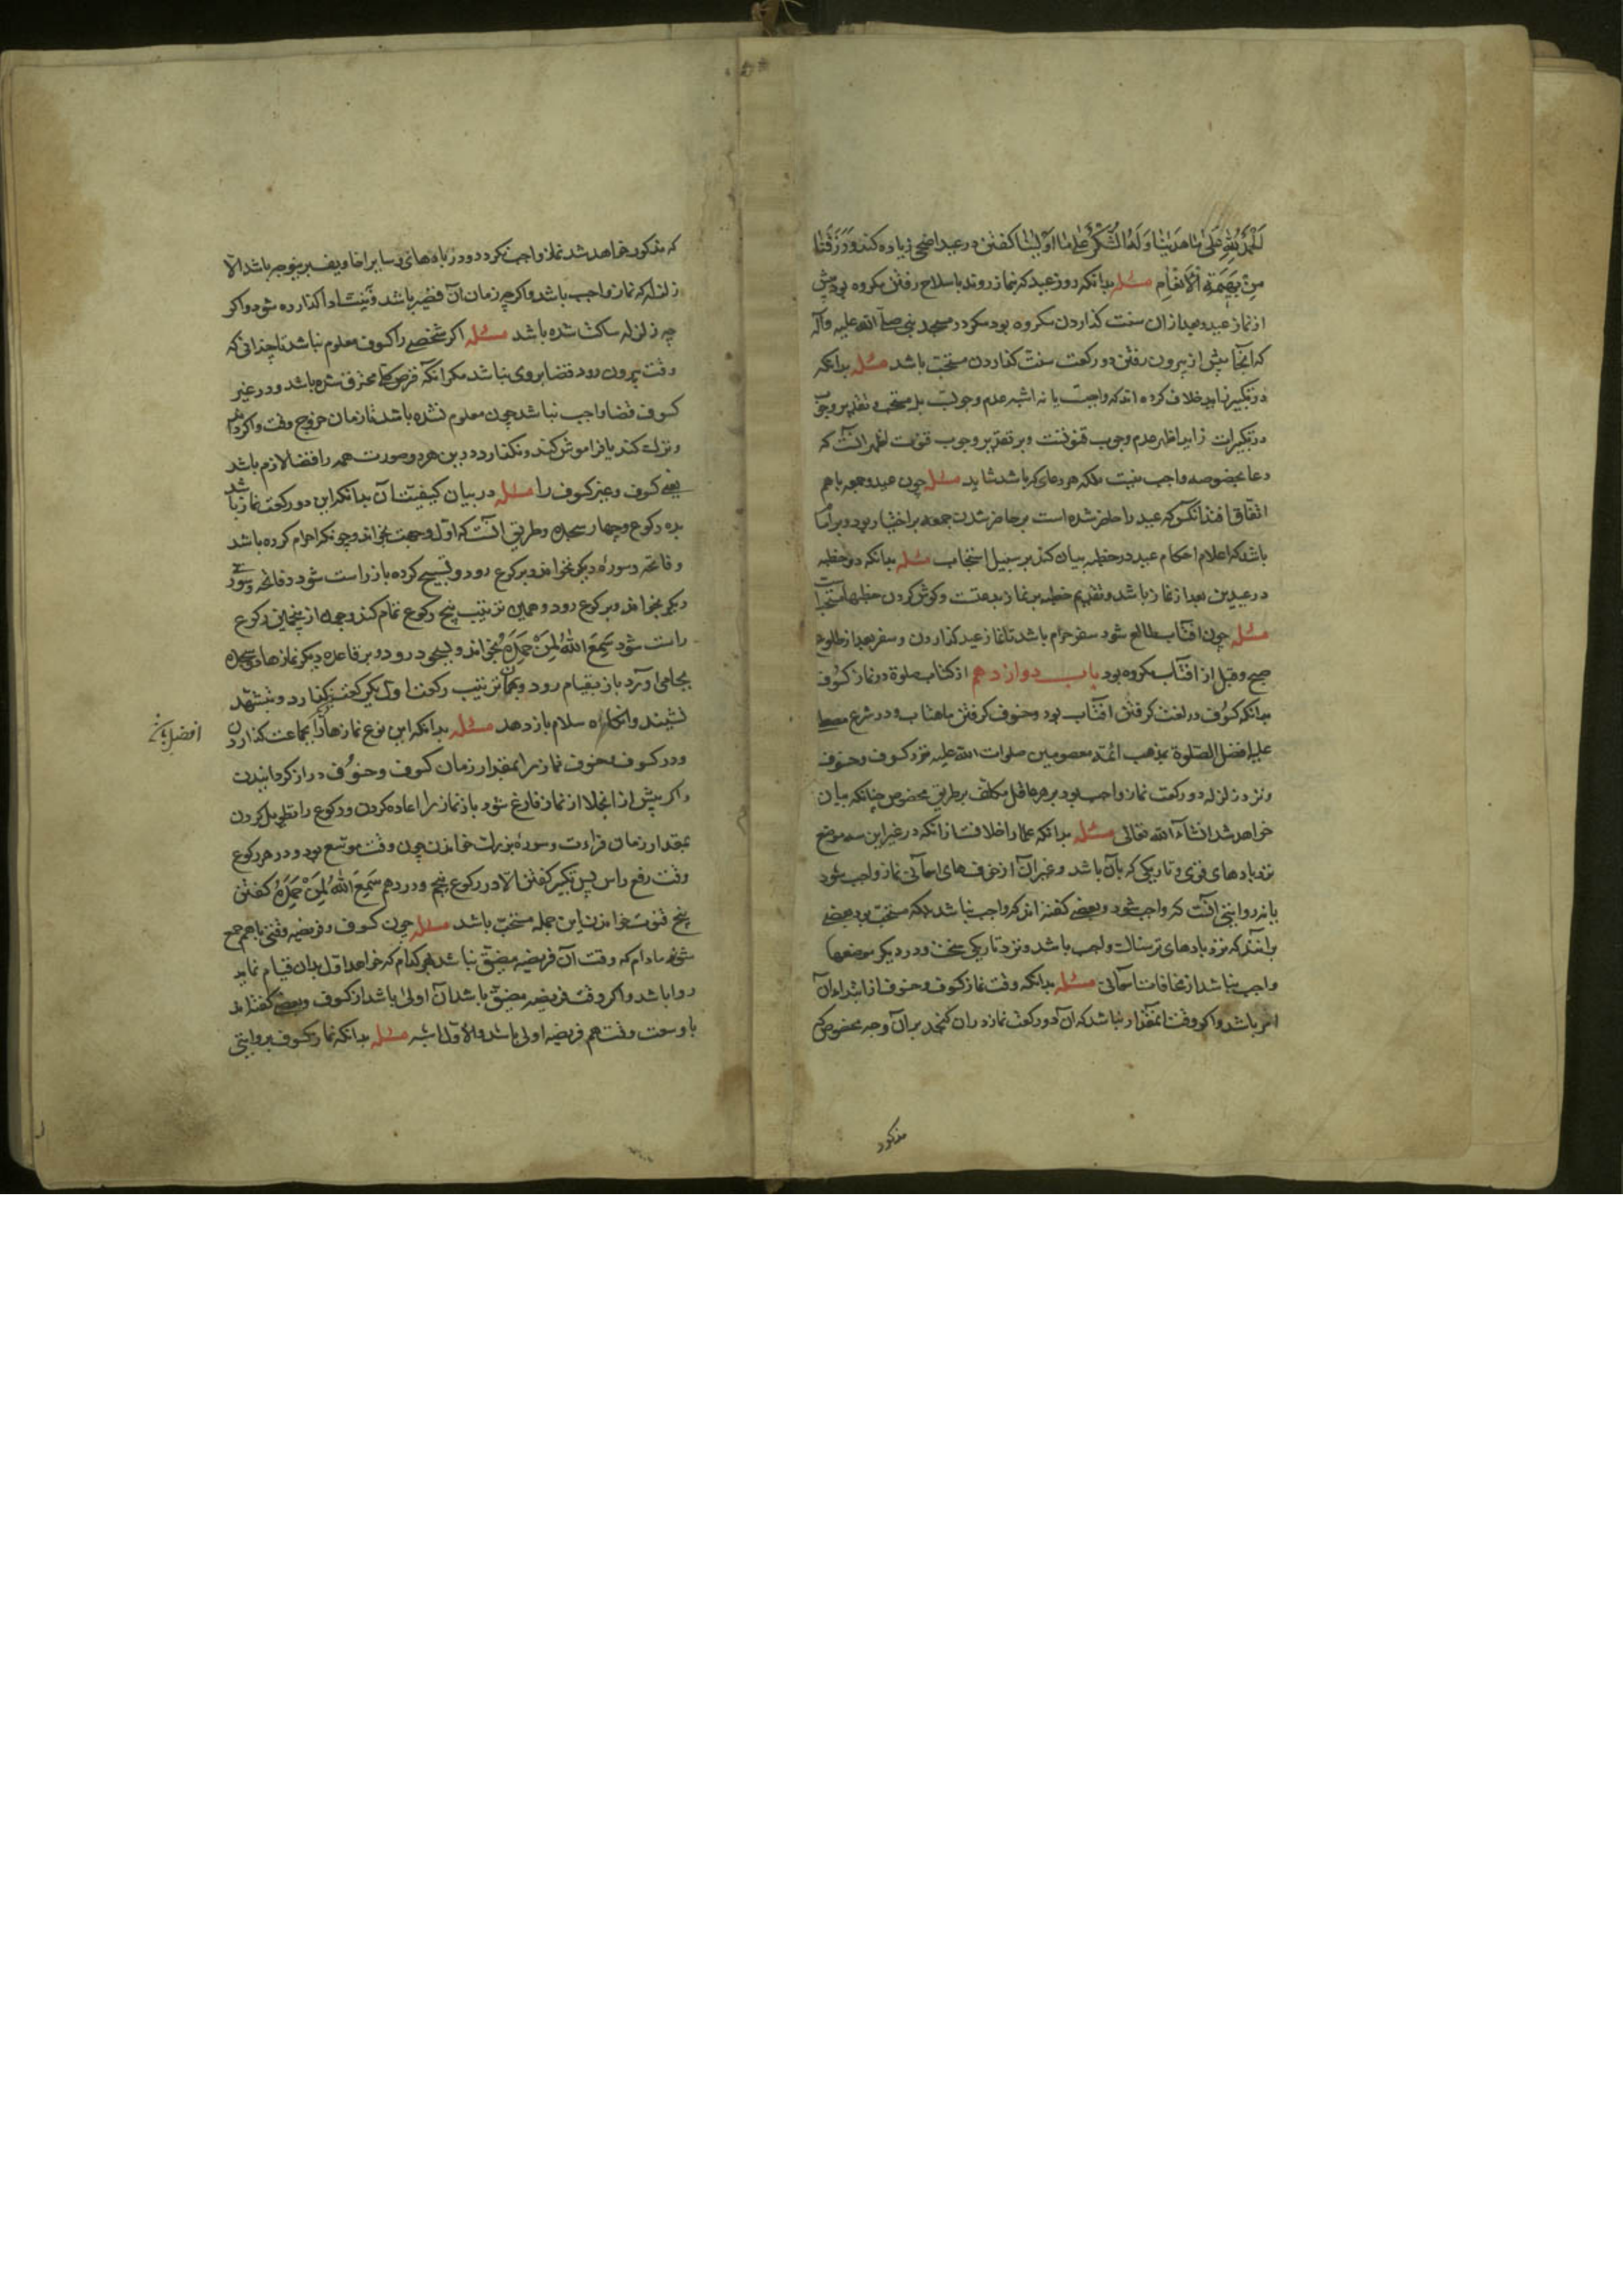 الحمد لله علی ما هدینا وله الشکر علی ما اولینا کفتن در عید اضحی زیاده کند ورزقنا
من بهیمة الانعام مسئله بدانکه روز عید که بنماز روند با سلاح رفتن مکروه بود پیش
از نماز عید و بعد از ان سنت کذاردن مکروه بود مکر در مسجد نبی صلی الله علیه وآله
که آنجا پیش از بیرون رفتن دو رکعت سنت کذاردن مستحب باشد مسئله بدانکه
در تکبیر زاید خلاف کرده اند که واجبست یا نه اشبه عدم وجوبست بل مستحب و تقدیر وجوب
در تکبیرات زاید اظهر عدم وجوب قنوتست وبر تقدیر وجوب قنوت اظهر آنست که
دعا بخصوصه واجب نیست بلکه هر دعای که باشد شاید مسئله چون عید وجمعه باهم
اتفاق افتد انکس که عید را حاضر شده است بر حاضر شدن جمعه براختیار بود وبر امام
باشد که اعلام احکام عید در خطبه بیان کند بر سبیل استحباب مسئله بدانکه دو خطبه
در عیدین بعد از نماز باشد وتقدیم خطبه بر نماز بدعتست وکوش کردن خطبها مستحب است
مسئله چون افتاب طالع شود سفر حرام باشد تا نماز عید کذاردن وسفر بعد از طلوع
صبح وقبل از افتاب مکروه بود باب دوازدهم از کتاب صلوة در نماز کسوف
بدانکه کسوف در لغت کرفتن افتاب بود وخسوف کرفتن ماهتاب ودر شرع
علیه افضل الصلوة بمذهب ائمه معصومین صلوات الله علیه نزد کسوف وخسوف
ونزد زلزله دو رکعت نماز واجب بود بر هر عاقل مکلف بر طریق مخصوص چنانکه بیان
خواهد شد انشاء الله تعالی مسئله بدانکه علما را خلافست ازانکه در غیر این سه موضع
نزد بادهای قوی وتاریکی که بآن باشد وغیر آن از خوفهای اسمانی نماز واجب شود
یا نه روایتی آنست که واجب شود وبعضی کفته اند که واجب نباشد بلکه مستحب بود وبعضی
برآنند که نزد بادهای ترسناک واجب باشد ونزد تاریکی سخت ودر دیکر موضعها
واجب نباشد از مخافات اسمانی مسئله بدانکه وقت نماز کسوف وخسوف از ابتداء آن
امر باشد واکر وقت بمقدار نباشد که آن دو رکعت نماز دران کنجد بر آن وجه مخصوص که
مذکور
که مذکور خواهد شد نماز واجب نکردد ودر بادهای وسایر مخاویف برینوجه باشد الا
زلزله که نماز واجب باشد واکرچه زمان آن قصیر باشد ونیت ادا کذارده شود واکر
چه زلزله ساکت شده باشد مسئله اکر شخصی را کسوف معلوم نباشد تا چندانی که
وقت بیرون رود قضا بروی نباشد مکر انکه قرص تمام محترق شده باشد ودر غیر
کسوف قضا واجب نباشد چون معلوم نشده باشد تا زمان خروج وقت واکر داند
وترک کند یا فراموش کند ونکذارد درین هر دو صورت همه را قضا لازم باشد
یعنی کسوف وغیر کسوف را مسئله در بیان کیفیت آن بدانکه این دو رکعت نماز باشد
بده رکوع وچهار سجده وطریق آنست که اول وجهت بخواند وچونکه احرام کرده باشد
وفاتحه وسوره دیکر بخواند وبرکوع رود وتسبیح کرده باز راست شود وفاتحه وسوره
دیکر بخواند وبرکوع رود وهمین ترتیب پنج رکوع تمام کند وچون از پنجمین رکوع
راست شود سمع الله لمن حمده بخواند وبسجود رود وبر قاعده دیکر نمازها دو سجده
بجای اورد باز بقیام رود وبهمان ترتیب رکعت اول یک رکعت بکذارد وبتشهد
نشیند وانکاه سلام باز دهد مسئله بدانکه این نوع نمازها را بجماعت کذاردن
افضل باشد
ودر کسوف وخسوف نماز را بمقدار زمان کسوف وخسوف دراز کردانیدن
واکر پیش از انجلا از نماز فارغ شود باز نماز را اعاده کردن ورکوع را تطویل کردن
بمقدار زمان قراءت وسوره بزرک خواندن چون وقت موسع بود ودر هر رکوع
وقت رفع راس پس تکبیر کفتن الا در رکوع پنجم ودر دهم سمع الله لمن حمده کفتن
پنج قنوت خواندن این جمله مستحب باشد مسئله چون کسوف وفریضه وقتی باهم جمع
شوند مادام که وقت آن فریضه مضیق نباشد هر کدام که خواهد اول بدان قیام نماید
روا باشد واکر وقت فریضه مضیق باشد آن اولی باشد از کسوف وبعضی کفته اند
با وسعت وقت هم فریضه اولی باشد والاول اشبه مسئله بدانکه نماز کسوف بروایتی